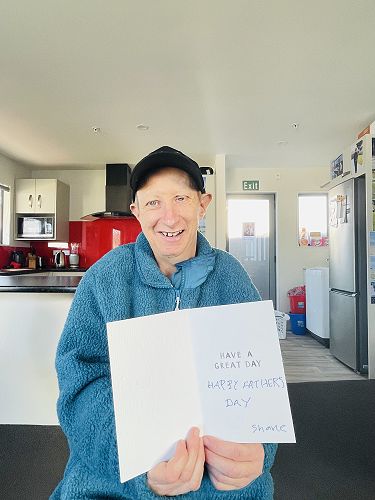 Exit
HAVE A
GREAT DAY
HAPPY FATHERS
DAY
Shane